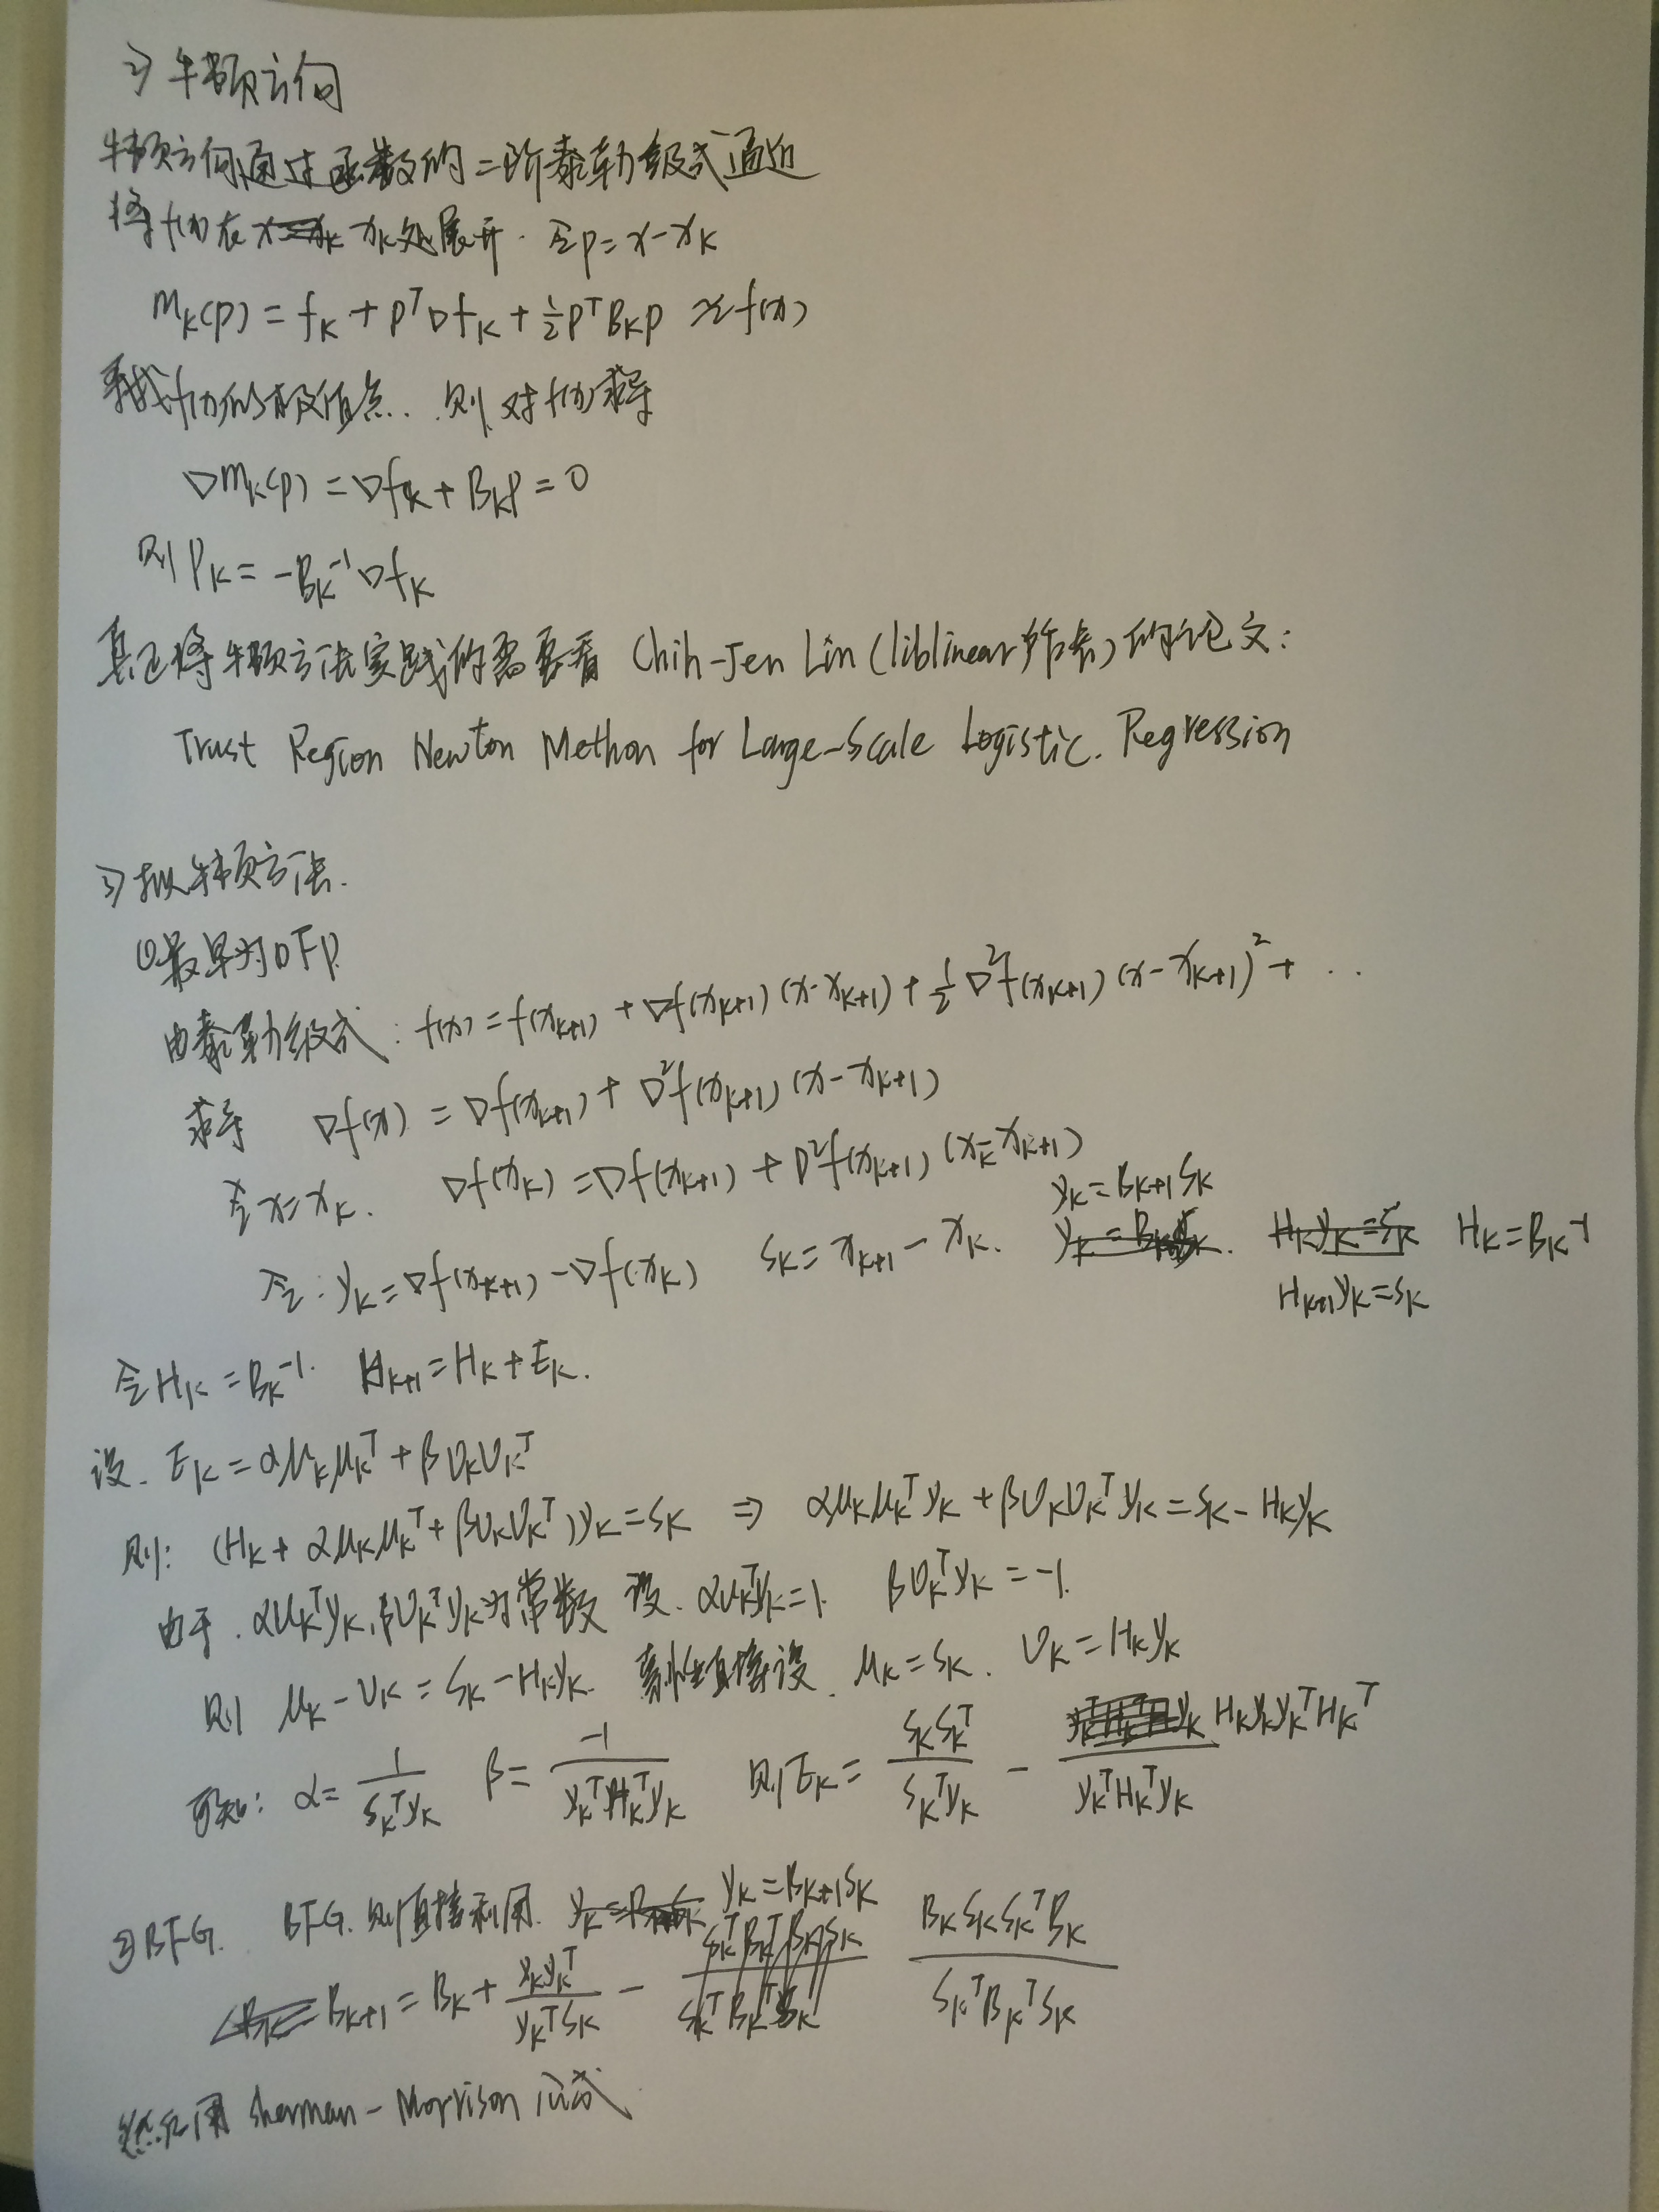 2) 牛顿方向
牛顿方向通过函数的二阶泰勒级式逼近
将f(x)在 xₖ处展开. 令p=x-xₖ
mₖ(p) = fₖ + pᵀ∇fₖ + ½pᵀBₖp ≈ f(x)
寻找f(x)的极值点. 则对f(x)求导
∇mₖ(p) = ∇fₖ + Bₖp = 0
则 pₖ = -Bₖ⁻¹∇fₖ
真正将牛顿方法实践的需要看 Chih-Jen Lin (liblinear作者) 的论文:
Trust Region Newton Methon for Large-Scale Logistic. Regression
3) 拟牛顿方法.
①最早为DFP.
由泰勒级式: f(x) = f(xₖ₊₁) + ∇f(xₖ₊₁)(x-xₖ₊₁) + ½∇²f(xₖ₊₁)(x-xₖ₊₁)² + ...
求导 ∇f(x) = ∇f(xₖ₊₁) + ∇²f(xₖ₊₁)(x-xₖ₊₁)
令x=xₖ. ∇f(xₖ) = ∇f(xₖ₊₁) + ∇²f(xₖ₊₁)(xₖ-xₖ₊₁)
yₖ = Bₖ₊₁sₖ
令: yₖ = ∇f(xₖ₊₁) - ∇f(xₖ) sₖ = xₖ₊₁ - xₖ. Hₖ = Bₖ⁻¹
Hₖ₊₁yₖ = sₖ
令Hₖ = Bₖ⁻¹. Hₖ₊₁ = Hₖ + Eₖ.
设. Eₖ = αμₖμₖᵀ + βυₖυₖᵀ
则: (Hₖ + αμₖμₖᵀ + βυₖυₖᵀ)yₖ = sₖ ⇒ αμₖμₖᵀyₖ + βυₖυₖᵀyₖ = sₖ - Hₖyₖ
由于. αμₖᵀyₖ, βυₖᵀyₖ为常数 设. αμₖᵀyₖ = 1. βυₖᵀyₖ = -1.
则 μₖ - υₖ = sₖ - Hₖyₖ. 直接设. μₖ = sₖ. υₖ = Hₖyₖ
可知: α = 1/(sₖᵀyₖ) β = -1/(yₖᵀHₖᵀyₖ) 则Eₖ = (sₖsₖᵀ)/(sₖᵀyₖ) - (HₖyₖyₖᵀHₖᵀ)/(yₖᵀHₖᵀyₖ)
②BFG. BFG. 则直接利用. yₖ = Bₖ₊₁sₖ
Bₖ₊₁ = Bₖ + (yₖyₖᵀ)/(yₖᵀsₖ) - (BₖsₖsₖᵀBₖ)/(sₖᵀBₖᵀsₖ)
然后用 Sherman-Morrison 公式